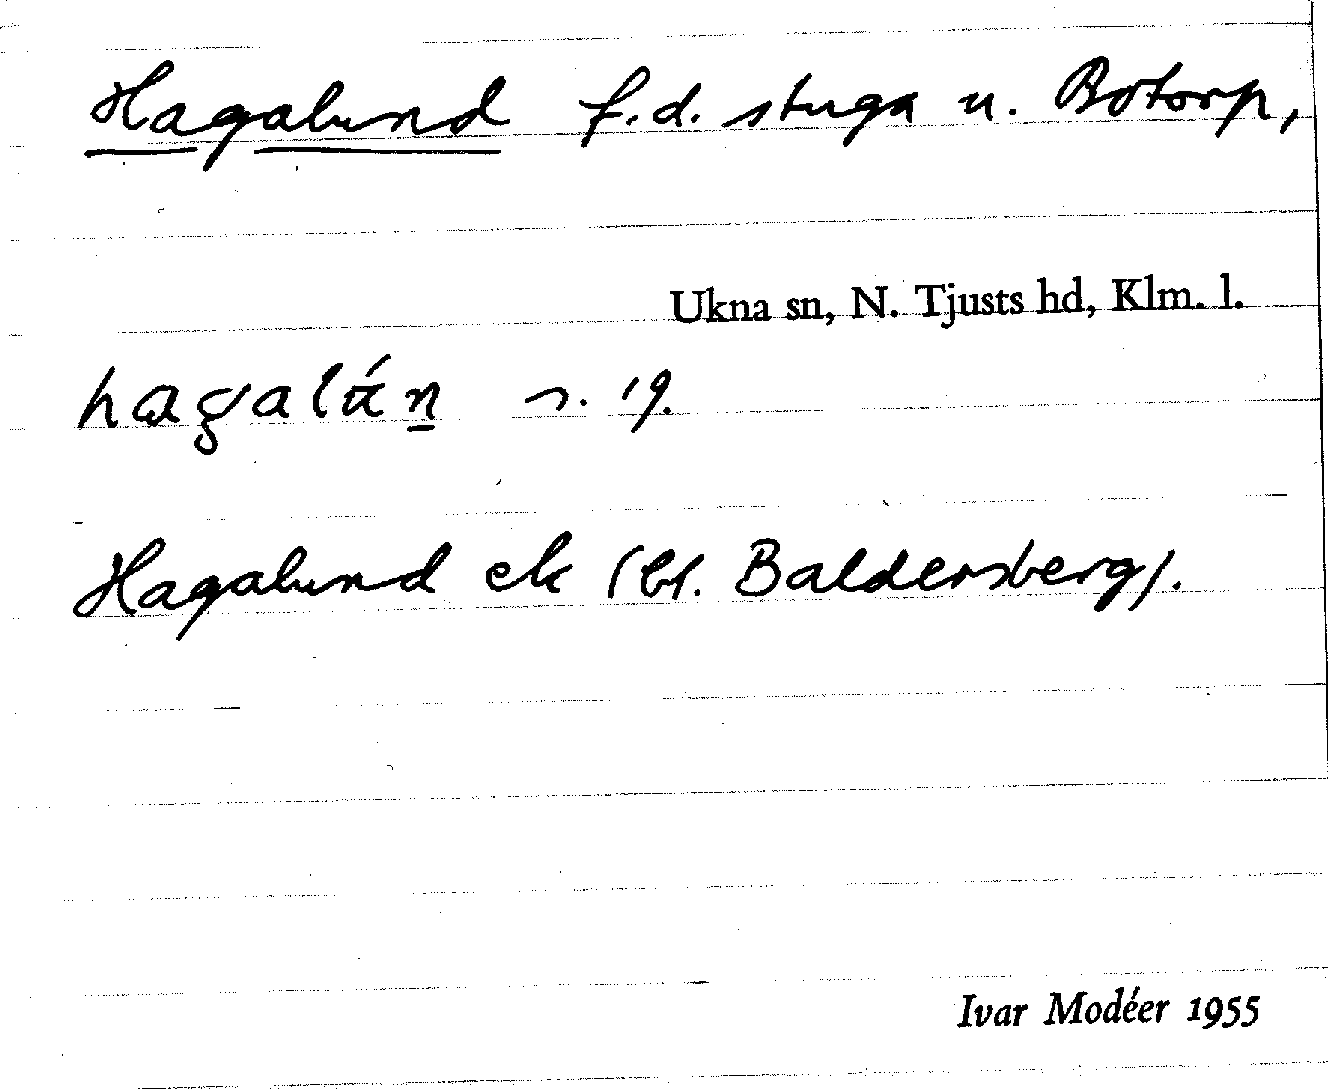 Hagalund f.d. stuga u. Botorp,
Ukna sn, N. Tjusts hd, Klm. l.
hagalún s. 19.
Hagalund ek (bl. Baldersberg).
Ivar Modéer 1955